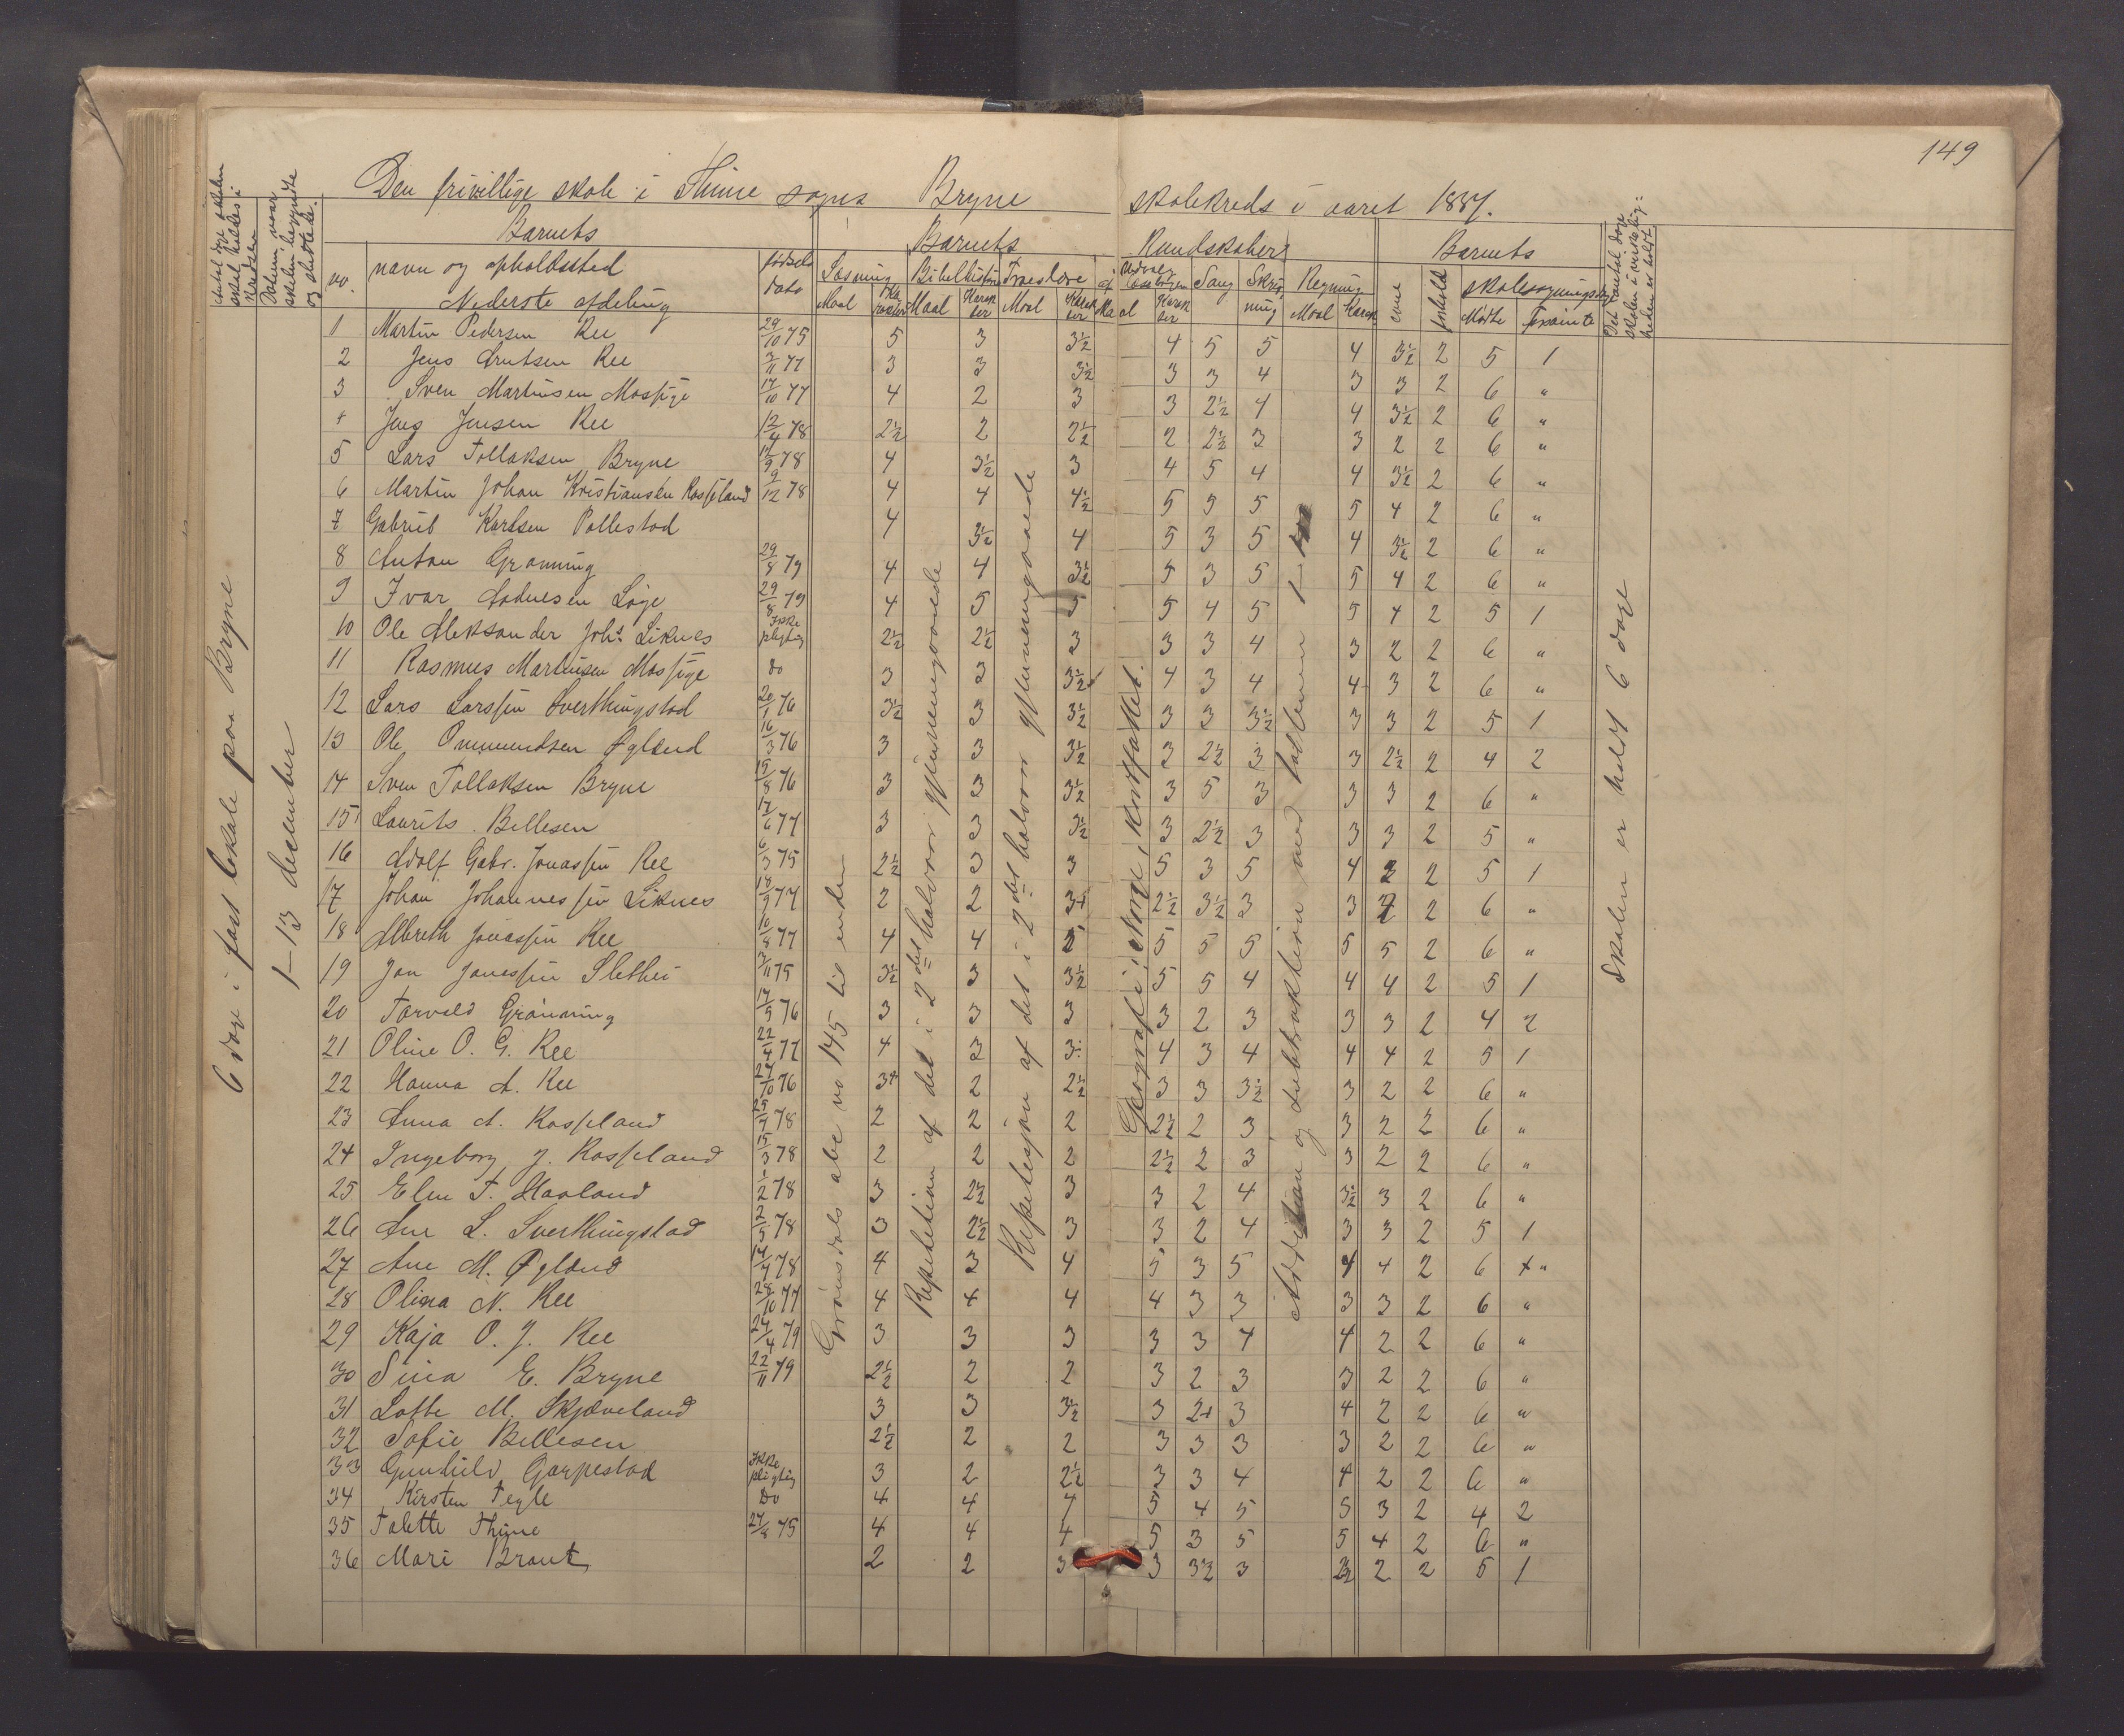 149
Den frivillige skole i Thime sogns Bryne skolekreds i aaret 1887.
Antal dage skolen skal holdes i kredsen
Datum naar skolen begyndte og sluttede.
Barnets
Barnets Kundskaber
Barnets
Det antal dage skolen i virkelig=heden er holdt
no. navn og opholdssted fødsels dato Læsning Bibelhistorie Troeslære Udvalg af Læsebogen Sang Skrivning Regning evne forhold skolesøgningsdage
Nederste afdeling Maal Karakter Maal Karakter Maal Karakter Maal Karakter Maal Karak. Mødte Forsømte
6 dage i fast lokale paa Bryne
1-13 december
Grønsdals abc no 145 til enden
Repetition af det i 2det halvaar gjennemgaaede
Repetisjon af det i 2det halvaar gjennemgaaede
Geografi: Norge, kortfattet.
Addition og subtraktion med tallene 1-
Skolen er holdt 6 dage
1 Martin Pedersen Ree 29/10 75 5 3 3½ 4 5 5 4 3½ 2 5 1
2 Jens Arntsen Ree 3/11 77 3 3 3½ 3 3 4 3 3 2 6 "
3 Sven Martinsen Mossige 17/10 77 4 2 3 3 2½ 4 4 3½ 2 6 "
4 Jens Jensen Ree 12/4 78 2½ 2 2½ 2 2½ 3 3 2 2 6 "
5 Lars Tollaksen Bryne 17/9 78 4 3½ 3 4 5 4 4 3½ 2 6 "
6 Martin Johan Kristiansen Rosseland 9/12 78 4 4 4½ 5 5 5 5 4 2 6 "
7 Gabriel Karlsen Pollestad 4 3½ 4 5 3 5 4 3½ 2 6 "
8 Anton Grønning 29/8 79 4 4 3½ 5 3 5 5 4 2 6 "
9 Ivar Aadnesen Løge 29/8 79 4 5 5 5 4 5 5 4 2 5 1
10 Ole Aleksander Johs. Liknes Ikke pligtig 2½ 2½ 3 3 3 4 3 2 2 6 "
11 Rasmus Martinsen Mossige Do 3 3 3½ 4 3 4 4 3 2 6 "
12 Lars Larssen Sverthingstad 20/1 76 3½ 3 3½ 3 3 3½ 3 3 2 5 1
13 Ole Ommundsen Øglænd 16/3 76 3 3 3½ 3 2½ 3 3 2½ 2 4 2
14 Sven Tollaksen Bryne 19/8 76 3 3 3½ 3 5 3 3 3 2 6 "
15 Laurits Bellesen 12/6 77 3 3 3½ 3 2½ 3 3 3 2 5 "
16 Adolf Gabr. Jonassen Ree 6/3 75 2½ 3 3 5 3 5 4 3 2 5 1
17 Johan Johannessen Liknes 18/9 77 2 2 3+ 2½ 3½ 3 3 2 2 6 "
18 Albreth Jonassen Ree 10/8 77 4 4 5 5 5 5 5 5 2 6 "
19 Jon Jonassen Slethei 3/11 75 3½ 3 3½ 5 5 4 4 4 2 5 1
20 Torvald Grønning 17/5 76 3 3 3 3 2 3 3 3 2 4 2
21 Oline O. G. Ree 22/4 77 4 3 3÷ 4 3 4 4 4 2 5 1
22 Hanna A. Ree 27/10 76 3+ 2 2½ 3 3 3½ 3 2 2 6 "
23 Anna A. Rosseland 25/7 78 2 2 2 2½ 2 3 3 2 2 6 "
24 Ingeborg J. Rosseland 15/3 78 2 2 2 2½ 2 3 3 2 2 6 "
25 Elen T. Haaland 1/2 78 3 2½ 3 3 2 4 3½ 3 2 6 "
26 Ane L. Sverthingstad 2/5 78 3 2½ 3 3 2 4 3 3 2 5 1
27 Ane M. Øglænd 14/7 78 4 3 4 5 3 5 4 4 2 6 "
28 Olina N. Ree 28/10 77 4 4 4 4 3 3 3 3 2 6 "
29 Kaja O. J. Ree 24/4 79 3 3 3 3 3 4 4 2 2 6 "
30 Sina E. Bryne 22/11 79 2½ 2 2 3 2 3 3 2 2 6 "
31 Lotte M. Skjæveland 3 3 3½ 3 2+ 3 4 2 2 6 "
32 Sofie Bellesen 2½ 2 2 3 3 3 3 2 2 6 "
33 Gunhild Garpestad Ikke pligtig 3 2 2½ 3 3 4 4 2 2 6 "
34 Kirsten Tegle Do 4 4 4 5 4 5 5 3 2 4 2
35 Tolette Thime 27/8 75 4 4 4 5 3 5 5 4 2 6 "
36 Mari Braut 2 2 3 3 3½ 3 2½ 2 2 5 1